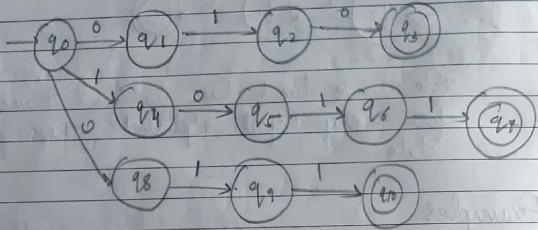 q0 0 q1 1 q2 0 q3
1 q4 0 q5 1 q6 1 q7
0 q8 1 q9 1 q10